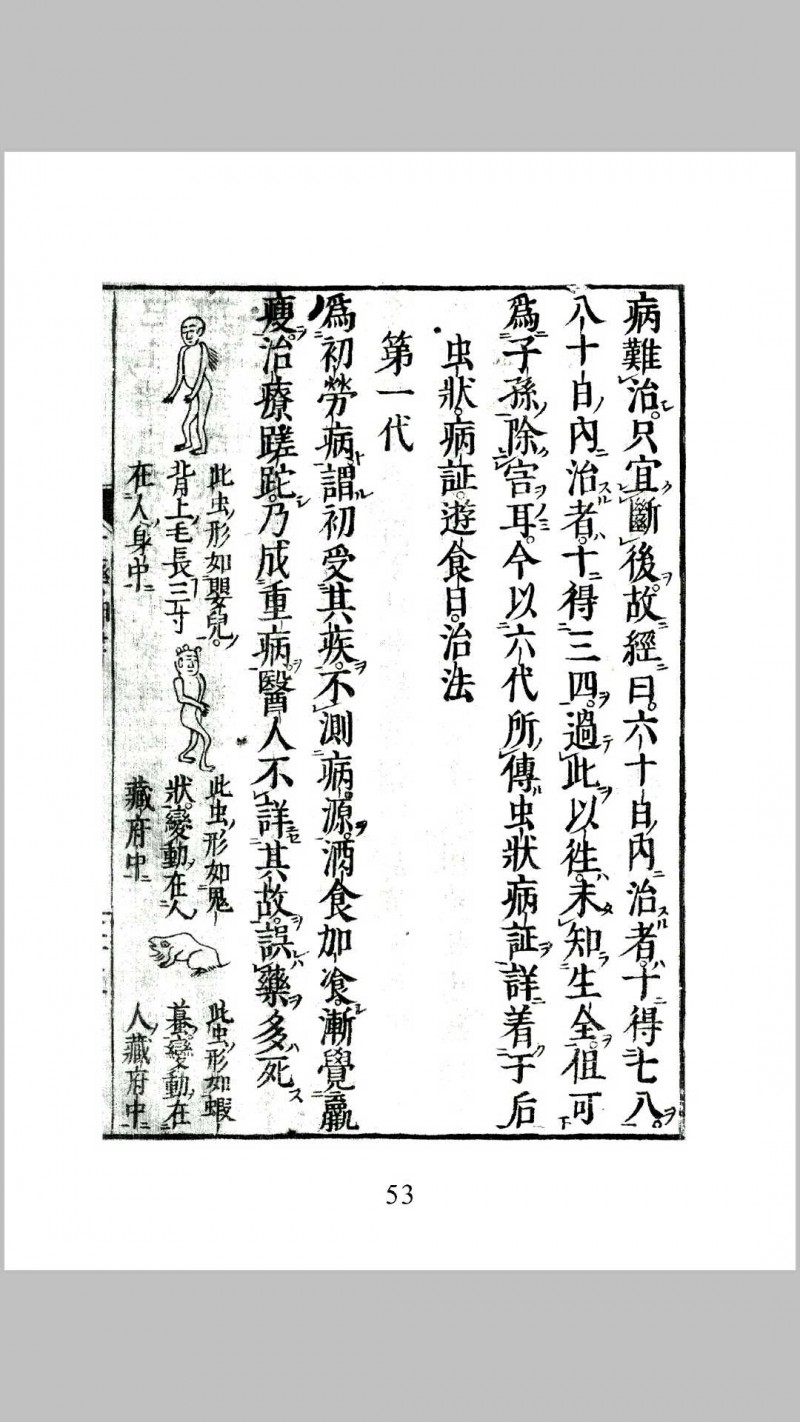 病難治。只宜斷後。故經曰。六十日內治者。十得七八。
八十日內治者。十得三四。過此以徃。未知生全。但可
爲子孫除害耳。今以六代所傳虫狀病証詳着于后
虫狀。病証。遊食日。治法
第一代
爲初勞病。謂初受其疾。不測病源。酒食加飡。漸覺羸
瘦。治療蹉跎。乃成重病。醫人不詳其故。誤藥多死
此虫形如嬰兒。
背上毛長三寸
在人身中
此虫形如鬼
狀。變動在人
藏府中
此虫形如蝦
蟇。變動在
人藏府中
53